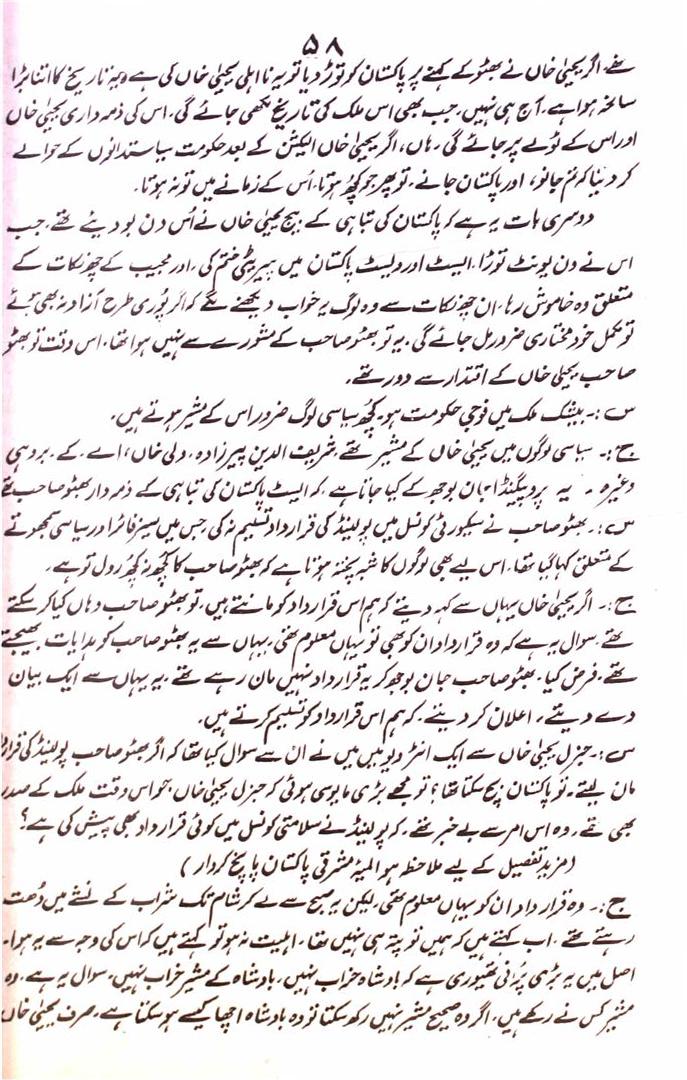 ۵۸
تھے۔ اگر یحییٰ خاں نے بھٹو کے کہنے پر پاکستان کو توڑ دیا تو یہ نااہلی یحییٰ خاں کی ہے ورنہ تاریخ کا اتنا بڑا
سانحہ ہوا ہے۔ آج ہی نہیں، جب بھی اس ملک کی تاریخ لکھی جائے گی۔ اس کی ذمہ داری یحییٰ خاں
اور اس کے ٹولے پر جائے گی۔ ہاں، اگر یحییٰ خاں الیکشن کے بعد حکومت سیاستدانوں کے حوالے
کر دیتا کہ تم جانو، اور پاکستان جانے۔ تو پھر جو کچھ ہوتا، اُس کے زمانے میں تو نہ ہوتا۔
دوسری بات یہ ہے کہ پاکستان کی تباہی کے بیج یحییٰ خاں نے اُس دن بو دیئے تھے۔ جب
اس نے ون یونٹ توڑا۔ ایسٹ اور ویسٹ پاکستان میں پیریٹی ختم کی۔ اور مجیب کے چھ نکات کے
متعلق وہ خاموش رہا۔ ان چھ نکات سے وہ لوگ یہ خواب دیکھنے لگے کہ اگر پوری طرح آزاد نہ بھی ہوئے
تو مکمل خود مختاری ضرور مل جائے گی۔ یہ تو بھٹو صاحب کے مشورے سے نہیں ہوا تھا۔ اس وقت تو بھٹو
صاحب یحییٰ خاں کے اقتدار سے دور تھے۔
س :۔ بیشک ملک میں فوجی حکومت ہو۔ کچھ سیاسی لوگ ضرور اس کے مشیر ہوتے ہیں۔
ج :۔ سیاسی لوگوں میں یحییٰ خاں کے مشیر تھے، شریف الدین پیرزادہ، ولی خاں، اے۔ کے۔ بروہی
وغیرہ ۔ یہ پروپیگنڈا جان بوجھ کے کیا جاتا ہے، کہ ایسٹ پاکستان کی تباہی کے ذمہ دار بھٹو صاحب تھے
س :۔ بھٹو صاحب نے سیکورٹی کونسل میں پولینڈ کی قرارداد تسلیم نہ کی، جس میں سیز فائر اور سیاسی سمجھوتے
کے متعلق کہا گیا تھا۔ اس لیے بھی لوگوں کا شبہ پختہ ہوتا ہے کہ بھٹو صاحب کا کچھ نہ کچھ رول تو ہے۔
ج :۔ اگر یحییٰ خاں یہاں سے کہہ دیتے کہ ہم اس قرارداد کو مانتے ہیں، تو بھٹو صاحب وہاں کیا کر سکتے
تھے۔ سوال یہ ہے کہ وہ قرارداد ان کو بھی تو یہاں معلوم تھی، یہاں سے یہ بھٹو صاحب کو ہدایات بھیجتے
تھے۔ فرض کیا، بھٹو صاحب جان بوجھ کر یہ قرارداد نہیں مان رہے تھے۔ یہ یہاں سے ایک بیان
دے دیتے۔ اعلان کر دیتے، کہ ہم اس قرارداد کو تسلیم کرتے ہیں۔
س :۔ جنرل یحییٰ خاں سے ایک انٹرویو میں میں نے ان سے سوال کیا تھا کہ اگر بھٹو صاحب پولینڈ کی قرارداد
مان لیتے۔ تو پاکستان بچ سکتا تھا؟ تو مجھے بڑی مایوسی ہوئی کہ جنرل یحییٰ خاں، جو اس وقت ملک کے صدر
بھی تھے۔ وہ اس امر سے بے خبر تھے۔ کہ پولینڈ نے سلامتی کونسل میں کوئی قرارداد بھی پیش کی ہے؟
(مزید تفصیل کے لیے ملاحظہ ہو المیۂ مشرقی پاکستان پانچ کردار)
ج :۔ وہ قرارداد ان کو یہاں معلوم تھی۔ لیکن یہ صبح سے لے کر شام تک شراب کے نشے میں دُھت
رہتے تھے۔ اب کہتے ہیں کہ ہمیں تو پتہ ہی نہیں تھا۔ اہلیت نہ ہو تو کہتے ہیں کہ اس کی وجہ سے یہ ہوا۔
اصل میں یہ بڑی پرانی تھیوری ہے کہ بادشاہ خراب نہیں، بادشاہ کے مشیر خراب نہیں۔ سوال یہ ہے۔ وہ
مشیر کس نے رکھے ہیں۔ اگر وہ صحیح مشیر نہیں رکھ سکتا تو وہ بادشاہ اچھا کیسے ہو سکتا ہے۔ صرف یحییٰ خاں